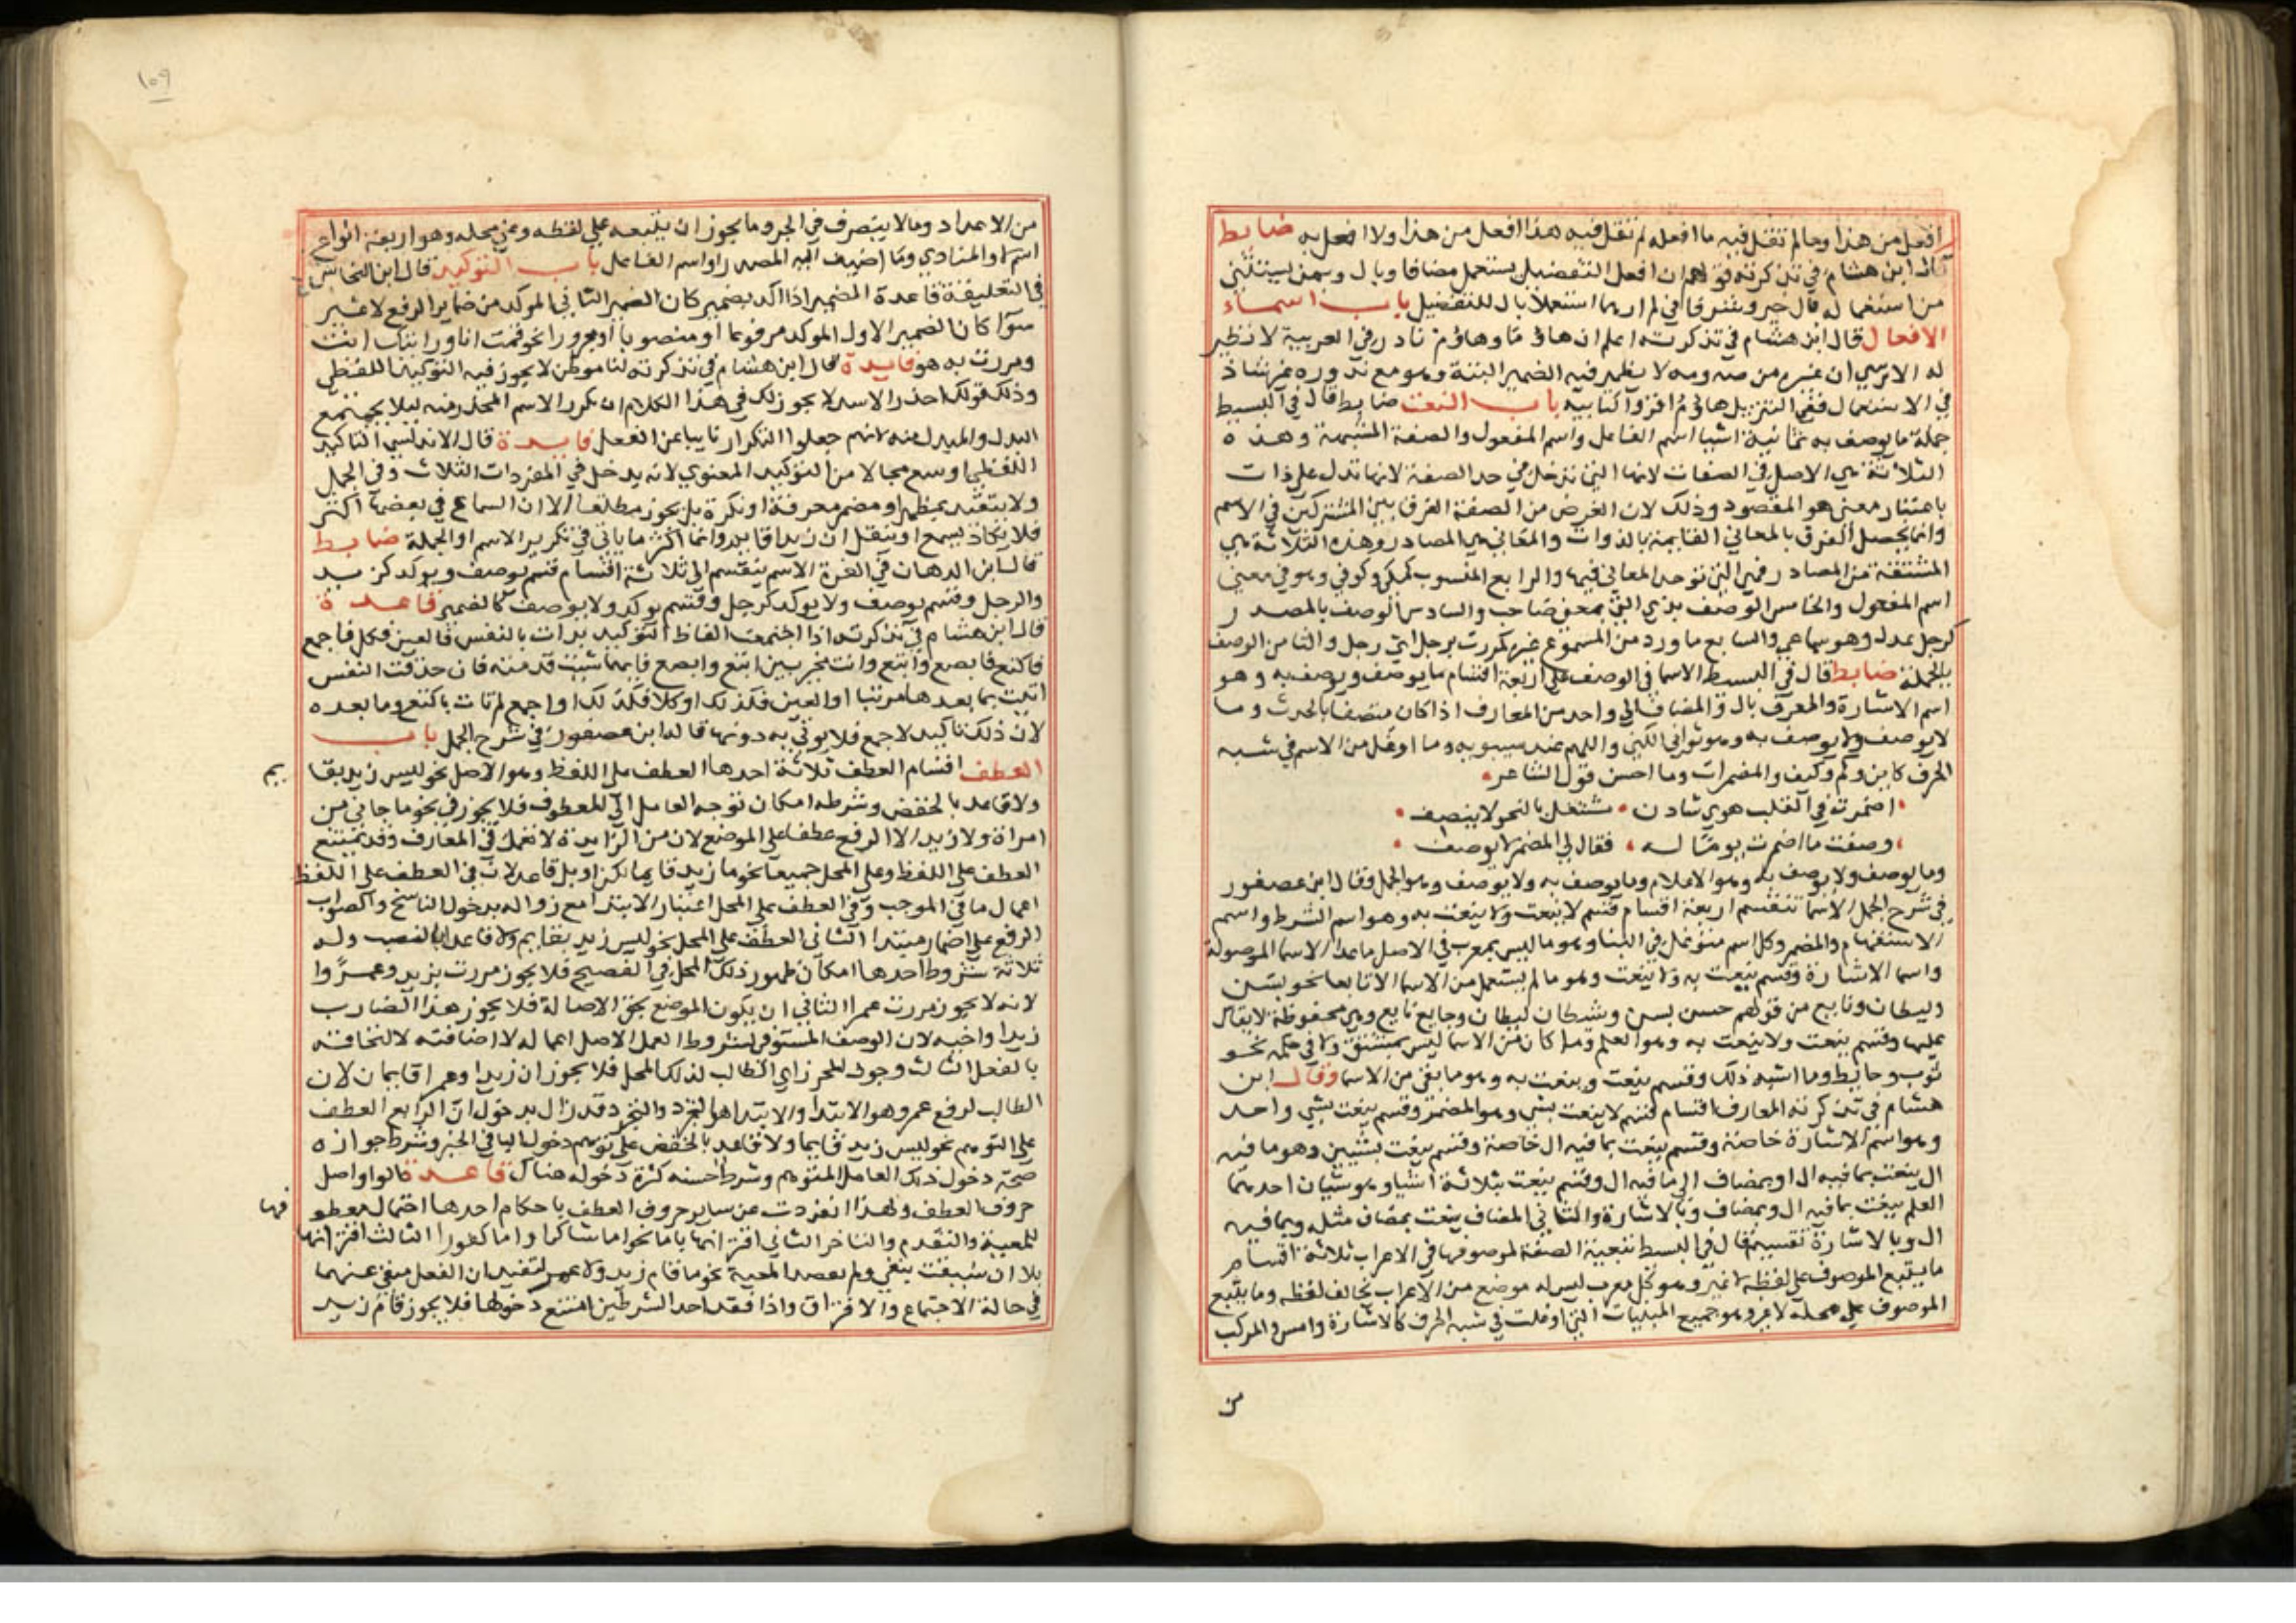 افعل من هذا وما لم تقل فيه ما افعله لم تقل فيه هذا افعل من هذا ولا افعل به ضابط
قال ابن هشام في تذكرته قولهم ان افعل التفضيل يستعمل مضافا وبال وبمن يستثنى
من استعماله بال خير وشر فاني لم ارهما استعملا بال للتفضيل باب اسماء
الافعال قال ابن هشام في تذكرته اعلم ان هاؤما وهاؤم نادر في العربية لا نظير
له الا ترى ان غيره من صه ومه لا يظهر فيه الضمير البتة وهو مع ندوره غير شاذ
في الاستعمال ففي التنزيل هاؤم اقروا كتابيه باب النعت ضابط قال في البسيط
جملة ما يوصف به ثمانية اشيا اسم الفاعل واسم المفعول والصفة المشبهة وهذه
الثلاثة هي الاصل في الصفات لانها التي تدخل في حد الصفة لانها تدل على ذات
باعتبار معنى هو المقصود وذلك لان الغرض من الصفة الفرق بين المشتركين في الاسم
وانما يحصل الفرق بالمعاني القايمة بالذوات والمعاني هي المصادر وهذه الثلاثة هي
المشتقة من المصادر فهي التي توجد المعاني فيها والرابع المنسوب كمكي وكوفي وهو في معنى
اسم المفعول والخامس الوصف بذي التي بمعنى صاحب والسادس الوصف بالمصدر
كرجل عدل وهو سماعي والسابع ما ورد من المسموع غيره كمررت برجل اي رجل والثامن الوصف
بالجملة ضابط قال في البسيط الاسما في الوصف على اربعة اقسام ما يوصف ويوصف به وهو
اسم الاشارة والمعرف بال والمضاف الى واحد من المعارف اذا كان متصفا بالحدث وما
لا يوصف ولا يوصف به وهو ثواني الكنى واللهم عند سيبويه وما اوغل من الاسم في شبه
الحرف كاين وكم وكيف والمضمرات وما احسن قول الشاعر
اضمرت في القلب هوى شادن مشتغل بالنحو لا ينصف
وصفت ما اضمرت يوما له فقال لي المضمر لا يوصف
وما يوصف ولا يوصف به وهو الاعلام وما يوصف به ولا يوصف وهو الجمل وقال ابن عصفور
في شرح الجمل الاسما تنقسم اربعة اقسام قسم لا ينعت ولا ينعت به وهو اسم الشرط واسم
الاستفهام والمضمر وكل اسم متوغل في البنا وهو ما ليس بمعرب في الاصل ما عدا الاسما الموصولة
واسما الاشارة وقسم ينعت به ولا ينعت وهو ما لم يستعمل من الاسما الا تابعا نحو بسن
وليطان ونايع من قولهم حسن بسن وشيطان ليطان وجايع نايع وهي محفوظة لا يقاس
عليها وقسم ينعت ولا ينعت به وهو العلم وما كان من الاسما ليس بمشتق ولا في حكمه نحو
ثوب وحايط وما اشبه ذلك وقسم ينعت وينعت به وهو ما بقي من الاسما وقال ابن
هشام في تذكرته المعارف اقسام قسم لا ينعت بشي وهو المضمر وقسم ينعت بشي واحد
وهو اسم الاشارة خاصة وقسم ينعت بما فيه ال خاصة وقسم ينعت بشيين وهو ما فيه
ال ينعت بما فيه ال او بمضاف الى ما فيه ال وقسم ينعت بثلاثة اشيا وهو شيان احدهما
العلم ينعت بما فيه ال وبمضاف وبالاشارة والثاني المضاف ينعت بمضاف مثله وبما فيه
ال وبالاشارة تقسيم قال في البسيط تبعية الصفة لموصوفها في الاعراب ثلاثة اقسام
ما يتبع الموصوف على لفظه لا غير وهو كل معرب ليس له موضع من الاعراب يخالف لفظه وما يتبع
الموصوف على محله لا غير وهو جميع المبنيات التي اوغلت في شبه الحرف كالاشارة وامس والمركب
من
١٥٩
من الاعداد وما لا ينصرف في الجر وما يجوز ان يتبعه على لفظه وعلى محله وهو اربعة انواع
اسم لا والمنادي وما اضيف اليه المصدر او اسم الفاعل باب التوكيد قال ابن النحاس
في التعليقة قاعدة المضمير اذا اكد بضمير كان الضمير الثاني الموكد من ضماير الرفع لا غير
سوا كان الضمير الاول الموكد مرفوعا او منصوبا او مجرورا نحو قمت انا ورايتك انت
ومررت به هو فايدة قال ابن هشام في تذكرته لنا موطن لا يجوز فيه التوكيد اللفظي
وذلك قولك احذر الاسد لا يجوز لك في هذا الكلام ان تكرر الاسم المحذر منه ليلا يجتمع
البدل والمبدل منه لانهم جعلوا التكرار نايبا عن الفعل فايدة قال الاندلسي التاكيد
اللفظي اوسع مجالا من التوكيد المعنوي لانه يدخل في المفردات الثلاث وفي الجمل
ولا يتقيد بمظهر او مضمر معرفة او نكرة بل يجوز مطلقا الا ان السماع في بعضها اكثر
فلا يكاد يسمع او ينقل ان زيدا قايم وانما اكثر ما ياتي في تكرير الاسم او الجملة ضابط
قال ابن الدهان في الغرة الاسم ينقسم الى ثلاثة اقسام قسم يوصف ويوكد كزيد
والرجل وقسم يوصف ولا يوكد كرجل وقسم يوكد ولا يوصف كالضمير قاعدة
قال ابن هشام في تذكرته اذا اجتمعت الفاظ التوكيد بدات بالنفس فالعين فكل فاجمع
فاكتع فابصع وابتع وانت مخير بين ابتع وابصع فايهما شيت قدمته فان حذفت النفس
اتيت بما بعدها مرتبا او العين فكذلك او كلا فكذلك او اجمع لم تات باكتع وما بعده
لان ذلك تاكيد لاجمع فلا يوتي به دونها قاله ابن عصفور في شرح الجمل باب
العطف اقسام العطف ثلاثة احدها العطف على اللفظ وهو الاصل نحو ليس زيد بقا
يم
ولا قاعد بالخفض وشرطه امكان توجه العامل الى المعطوف فلا يجوز في نحو ما جاني من
امراة ولا زيد الا الرفع عطفا على الموضع لان من الزايدة لا تعمل في المعارف وقد يمتنع
العطف على اللفظ وعلى المحل جميعا نحو ما زيد قايما لكن او بل قاعد لان في العطف على اللفظ
اعمال ما في الموجب وفي العطف على المحل اعتبار الابتدا مع زواله بدخول الناسخ والصواب
الرفع على اضمار مبتدا الثاني العطف على المحل نحو ليس زيد بقايم ولا قاعدا بالنصب وله
ثلاثة شروط احدها امكان ظهور ذلك المحل في الفصيح فلا يجوز مررت بزيد وعمرا
لانه لا يجوز مررت عمرا الثاني ان يكون الموضع بحق الاصالة فلا يجوز هذا الضارب
زيدا واخيه لان الوصف المستوفي لشروط العمل الاصل اعماله لا اضافته لالتحاقه
بالفعل الثالث وجود المحرز اي الطالب لذلك المحل فلا يجوز ان زيدا وعمرا قايمان لان
الطالب لرفع عمرو هو الابتدا والابتدا هو التجرد والتجرد قد زال بدخول ان الرابع العطف
على التوهم نحو ليس زيد قايما ولا قاعد بالخفض على توهم دخول البا في الخبر وشرط جوازه
صحة دخول ذلك العامل المتوهم وشرط حسنه كثرة دخوله هناك قاعدة قالوا واصل
حروف العطف ولهذا انفردت عن ساير حروف العطف باحكام احدها احتمال معطو
فها
للمعية والتقدم والتاخر الثاني اقترانها باما نحو اما شاكرا واما كفورا الثالث اقترانها
بلا ان سبقت بنفي ولم يقصد المعية نحو ما قام زيد ولا عمرو لتفيد ان الفعل منفي عنهما
في حالة الاجتماع والافتراق واذا فقد احد الشرطين امتنع دخولها فلا يجوز قام زيد